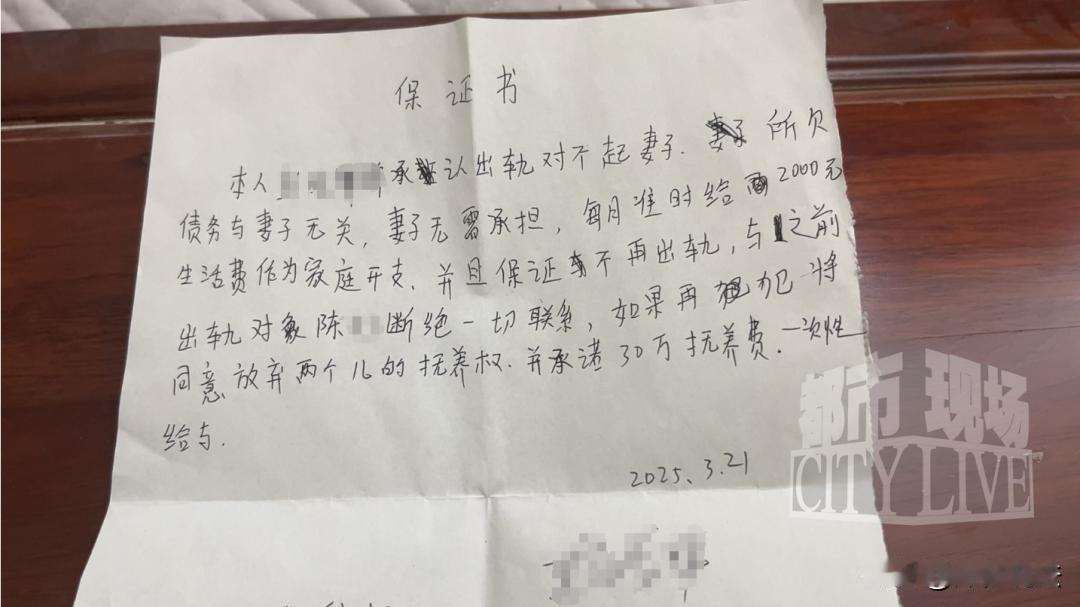 保证书
本人 承认出轨对不起妻子. 所欠
债务与妻子无关, 妻子无需承担, 每月准时给2000元
生活费作为家庭开支. 并且保证不再出轨, 与之前
出轨对象陈 断绝一切联系, 如果再犯将
同意放弃两个儿的抚养权. 并承诺30万抚养费. 一次性
给与.
2025.3.21
都市现场
CITY LIVE